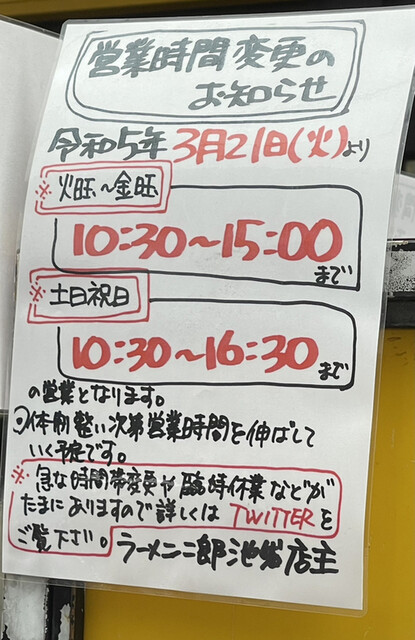 営業時間変更の
お知らせ
令和5年3月21日(火)より
※火旺〜金旺
10:30〜15:00
まで
※土日祝日
10:30〜16:30まで
の営業となります。
体制整い次第営業時間を伸ばして
いく予定です。
※急な時間帯変更や臨時休業などが
たまにありますので詳しくはTWITTERを
ご覧下さい。ラーメン二郎池袋店主